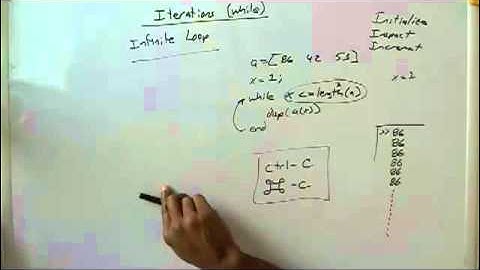 Iterations (while)
Infinite Loop
a=[86 42 51]
x=1;
while x<=length(a)
disp(a(x))
end
Ctrl-C
⌘-C
Initialize
Inspect
Increment
x=1
>> 86
86
86
86
86
86